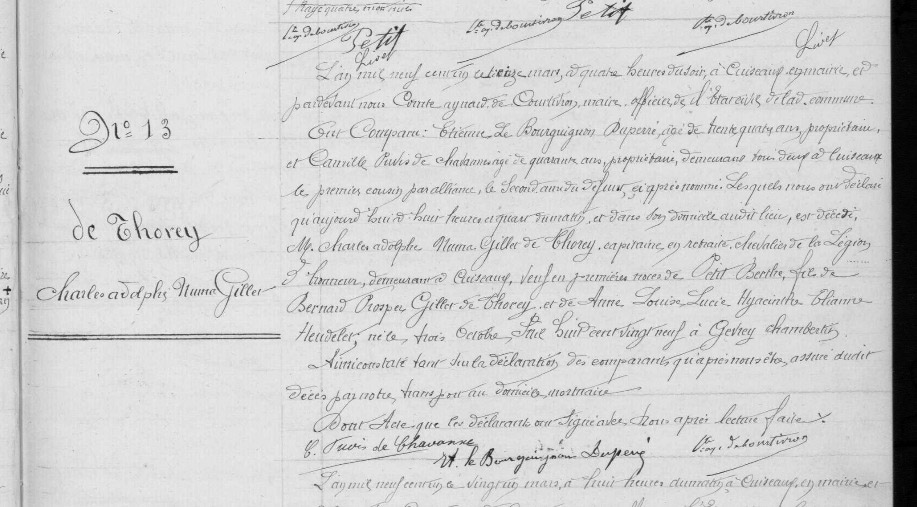 l'age quatre, mon mis
Cte A. de Courtivron Cte A. de Courtivron Petit Cte A. de Courtivron
Petit
Livet Livet
L'an mil neuf cent un, le seize mars, à quatre heures du soir, à Cuiseaux, en mairie, et
pardevant nous Comte aynard de Courtivron, maire, officier de l'État civil de lad. commune.
Ont Comparu : Etienne Le Bourguignon Duperré, agé de trente quatre ans, propriétaire,
et Camille Puvis de Chavannes agé de quarante ans, propriétaire, demeurans tous deux à Cuiseaux
le premier cousin par alliance, le Second ami du défunt, ci après nommé. Lesquels nous ont déclaré
qu'aujourd'hui à huit heures et quart du matin, et dans son domicile audit lieu, est décédé,
M. Charles adolphe Numa Gillet de Thorey, capitaine en retraite, chevalier de la Légion
d'honneur, demeurant à Cuiseaux, veuf en premières noces de Petit Berthe, fils de
Bernard Prosper Gillet de Thorey, et de Anne Louise Lucie Hyacinthe Etienne
Heudelet, né le trois Octobre, mil huit cent vingt neuf à Gevrey Chambertin.
Ainsi constaté tant sur la déclaration des comparants qu'après nous être assuré dudit
décès par notre transport au domicile mortuaire
Dont Acte que les déclarants ont signé avec Nous après lecture faite.
C. Puvis de Chavannes Cte A. de Courtivron
E. le Bourguignon Duperré
L'an mil neuf cent un le vingt un mars, à huit heures du matin à Cuiseaux, en mairie et
No 13
de Thorey
Charles adolphe Numa Gillet